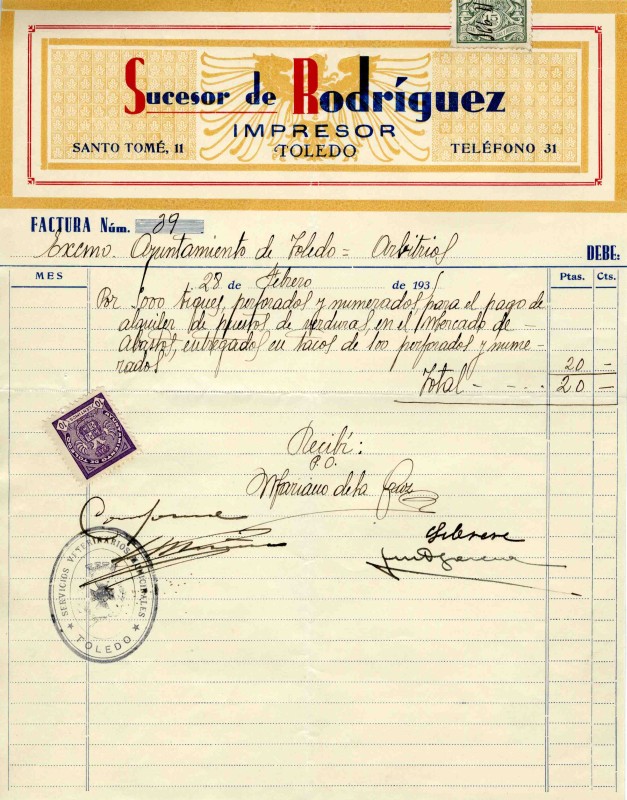 Sucesor de Rodríguez
IMPRESOR
SANTO TOMÉ, 11 TOLEDO TELÉFONO 31
FACTURA Núm. 39
Excmo. Ayuntamiento de Toledo = Arbitrios DEBE:
MES 28 de febrero de 1935 Ptas. Cts.
Por 5000 tiques, perforados y numerados para el pago de
alquiler de puestos de verduras en el Mercado de
Abastos, entregados en tacos de 100 perforados y nume-
rados 20 -
Total - - - - 20 -
Recibí:
P.O.
Mariano de la Cruz
Conforme
SERVICIOS VETERINARIOS MUNICIPALES
TOLEDO